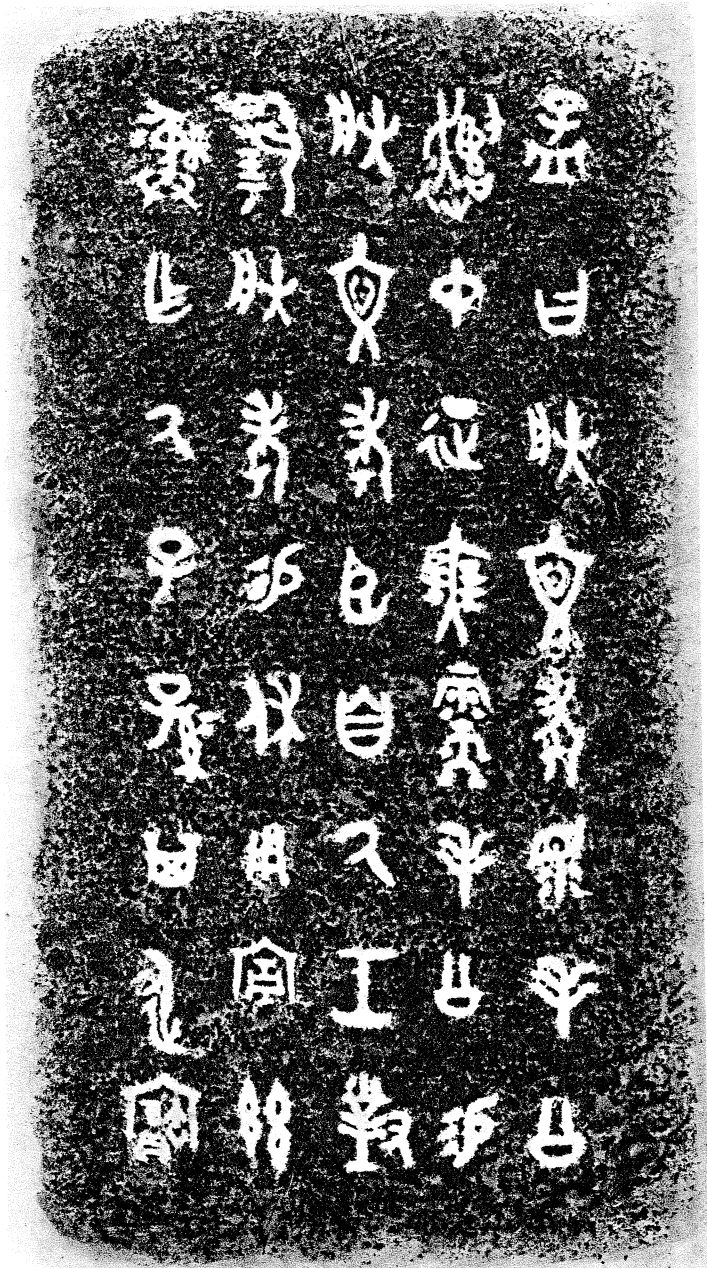 孟曰朕文考眔毛公
遣中征無需毛公易
朕文考臣自厥工對
揚朕考易休用宣茲
彝乍厥子孫其永寶